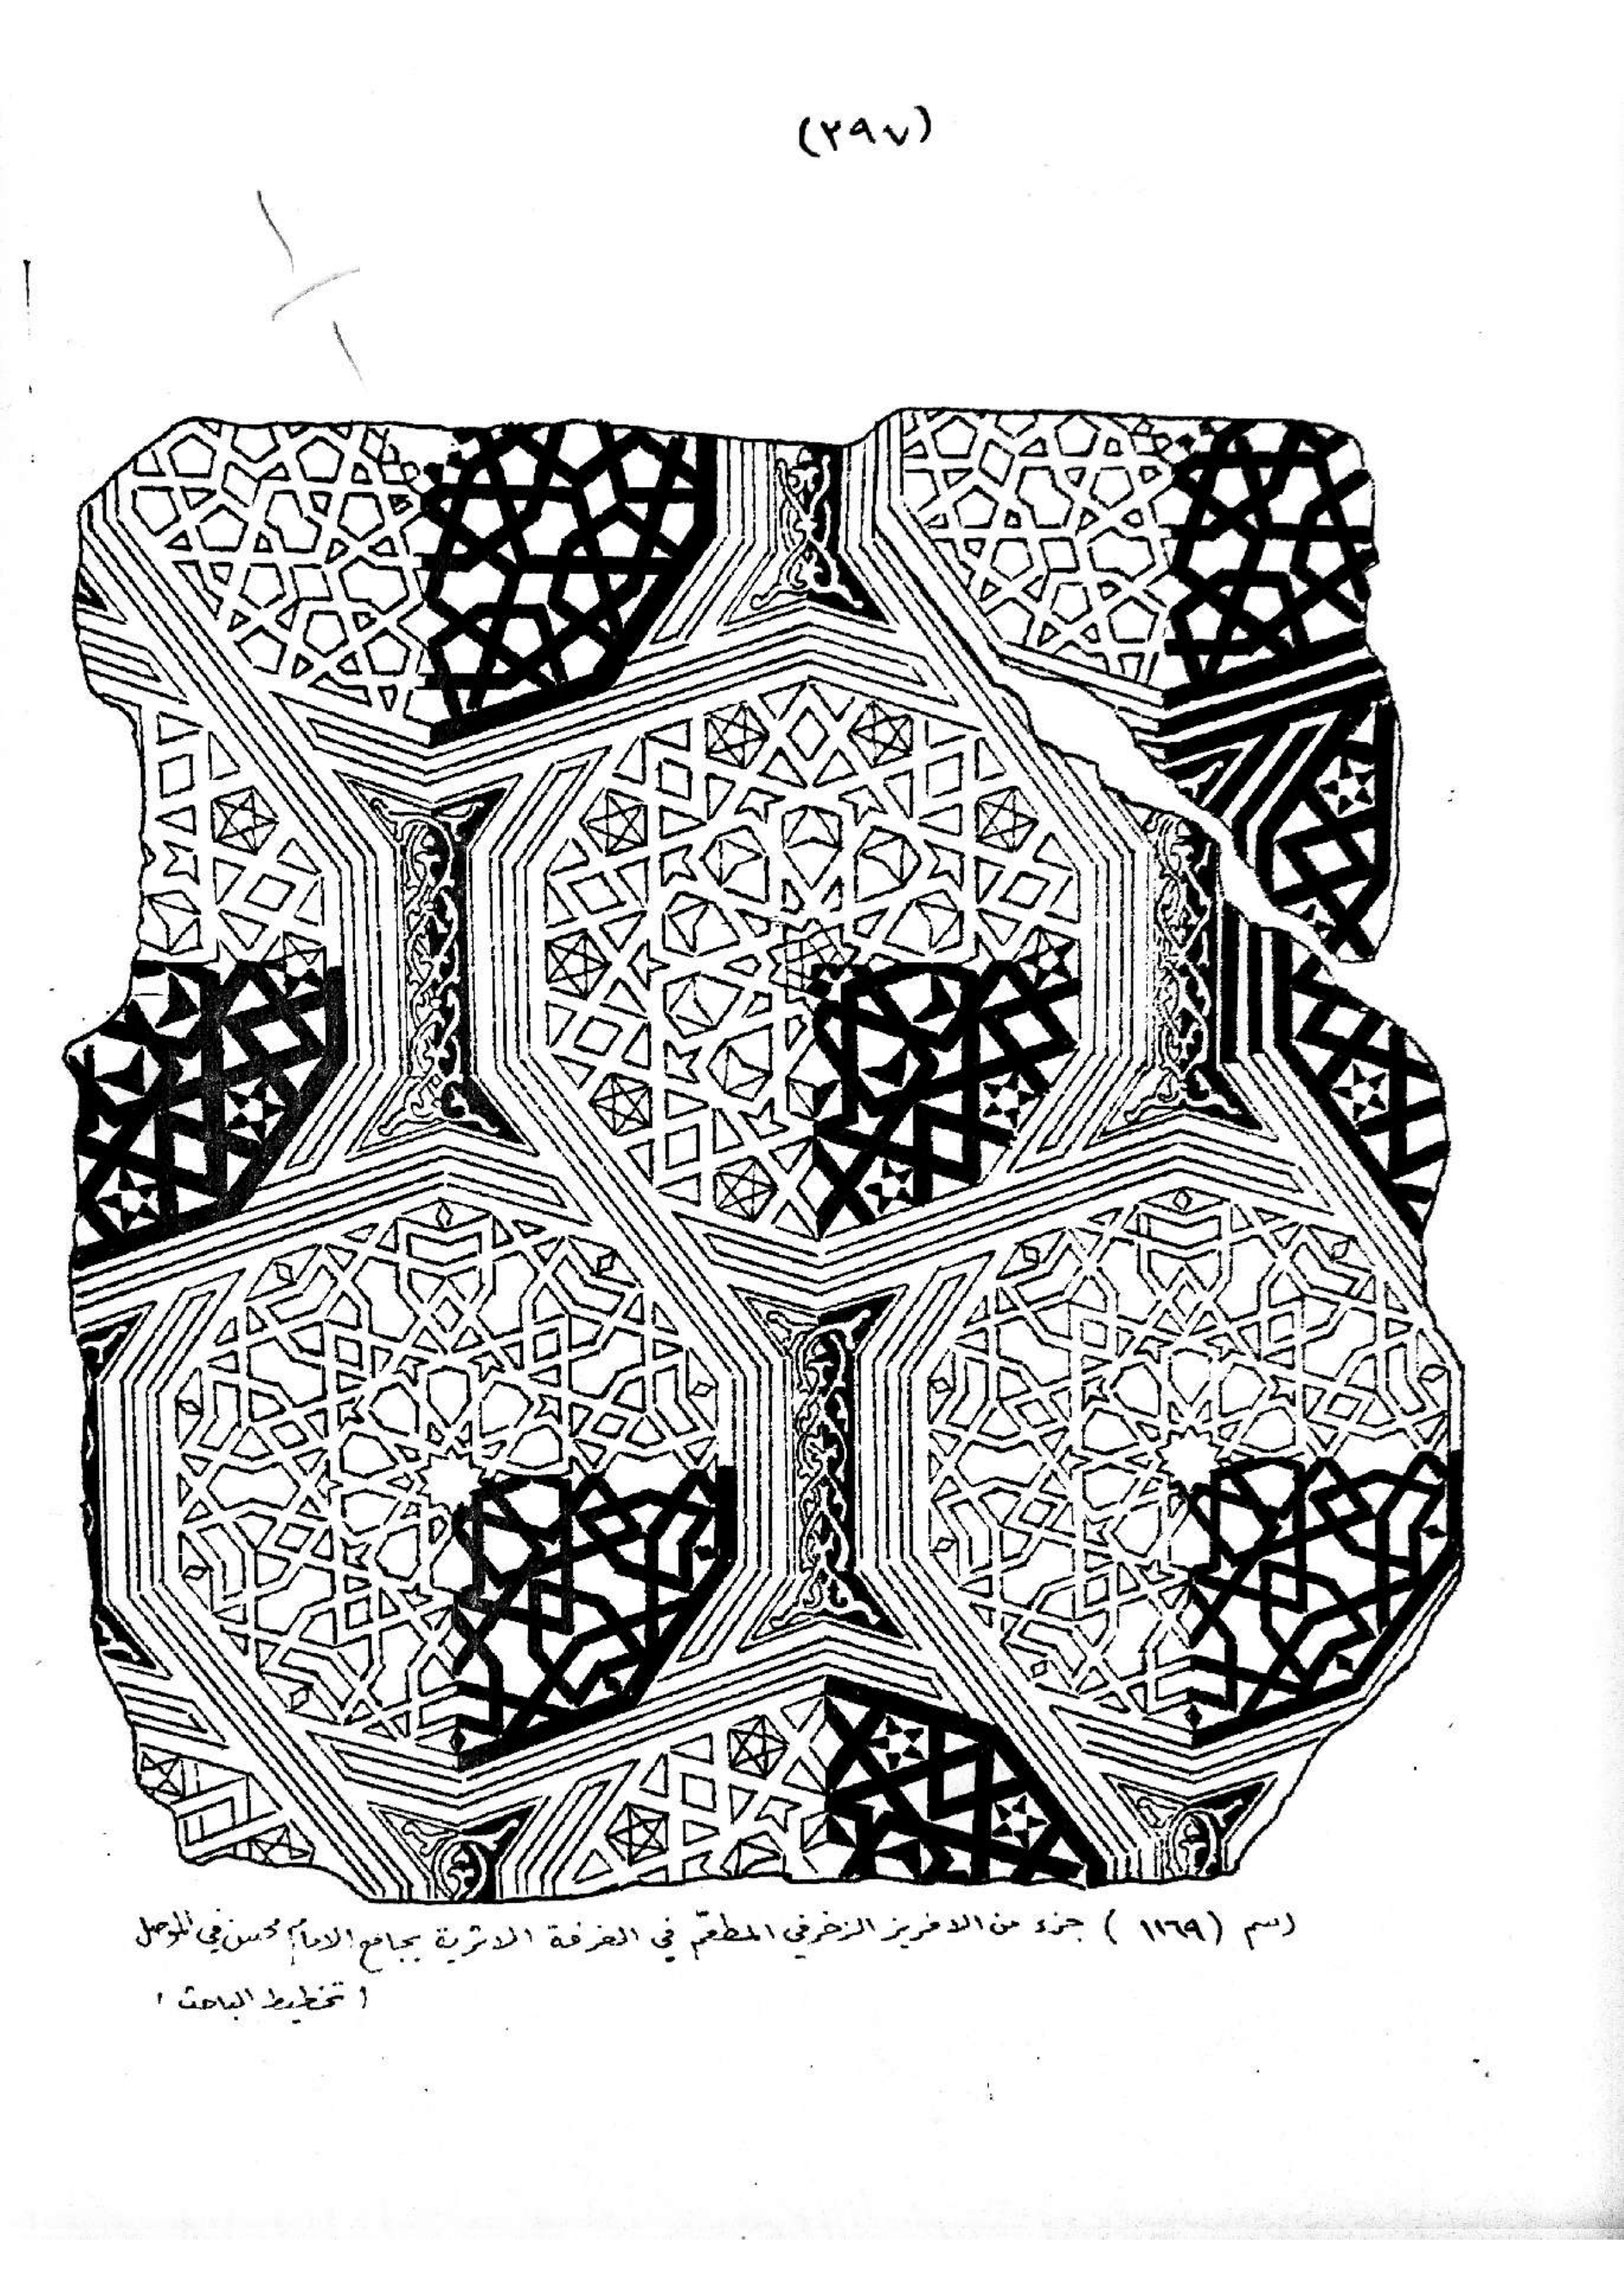 (٢٩٧)
رسم (١١٦٩) جزء من الافريز الزخرفي المطعّم في الغرفة الاثرية بجامع الامام محسن في الموصل
(تخطيط الباحث)